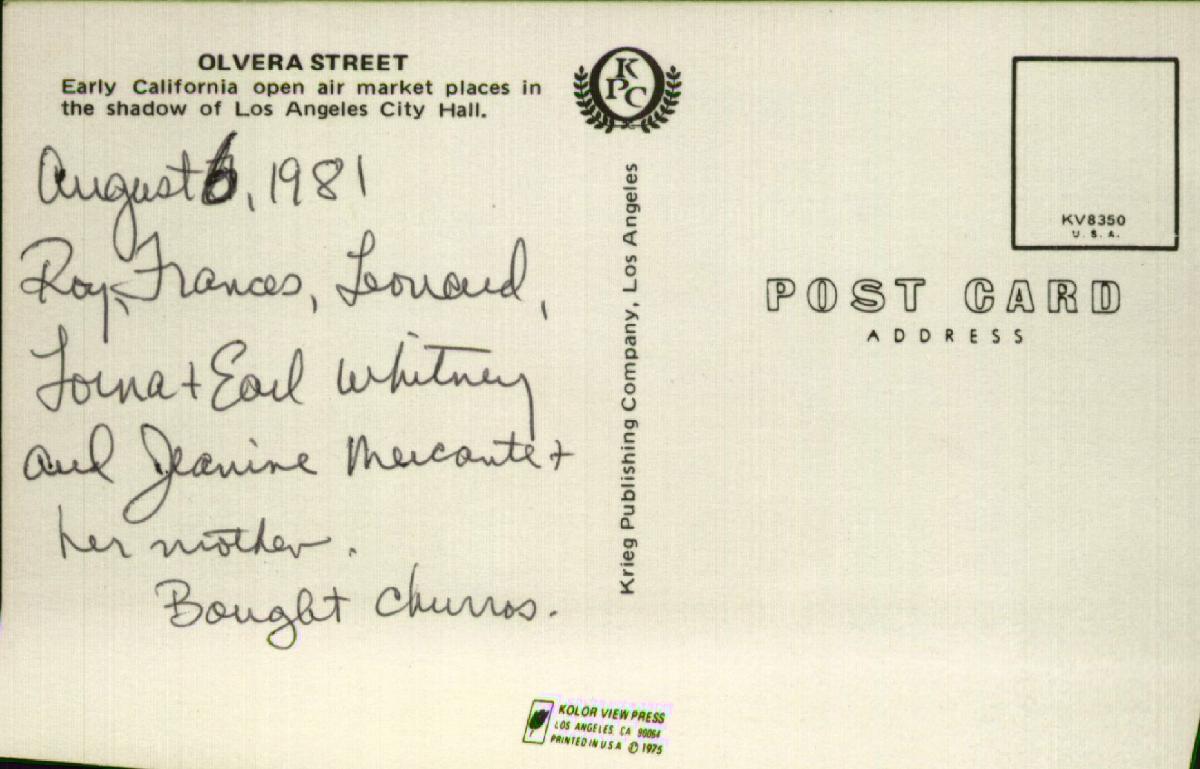 OLVERA STREET
Early California open air market places in
the shadow of Los Angeles City Hall.
August 6, 1981
Roy, Frances, Leonard,
Lorna + Earl Whitney
and Jeanine Mercante +
her mother.
Bought churros.
KPC
Krieg Publishing Company, Los Angeles
KV8350
U.S.A.
POST CARD
ADDRESS
KOLOR VIEW PRESS
LOS ANGELES, CA 90064
PRINTED IN U.S.A. © 1975